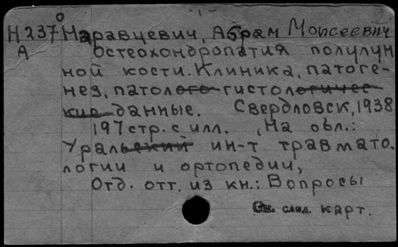 Н 237⁰ Маравцевич, Абрам Моисеевич
А Остеохондропатия полулун
ной кости. Клиника, патоге-
нез, патолого-гистологичес-
кие данные. Свердловск, 1938
197 стр. с илл. , На обл.:
Уральский ин-т травмато.
логии и ортопедии,
Отд. отт. из кн.: Вопросы
См. след. карт.